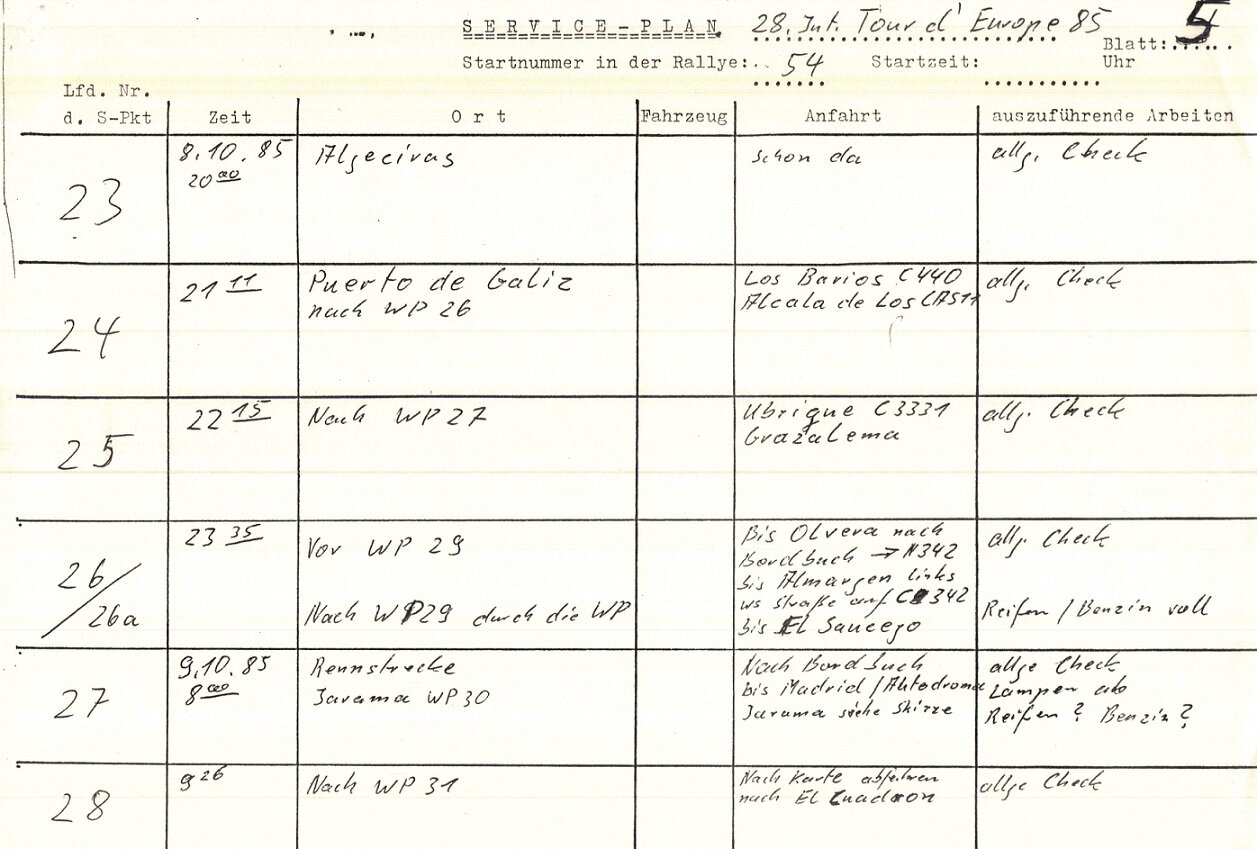 SERVICE-PLAN 28. Int. Tour d' Europe 85
Blatt: 5
Startnummer in der Rallye: 54 Startzeit: Uhr
Lfd. Nr.
d. S-Pkt Zeit Ort Fahrzeug Anfahrt auszuführende Arbeiten
23 8.10.85 Algeciras schon da allg. Check
20 00
24 21 11 Puerto de Galiz Los Barios C440 allg. Check
nach WP 26 Alcala de Los
25 22 15 Nach WP 27 Ubrique C3331 allg. Check
Grazalema
26/26a 23 35 Vor WP 29 Bis Olvera nach allg. Check
Bordbuch → N342
bis Almargen links
Nach WP29 durch die WP straße auf C 342 Reifen / Benzin voll
bis El Saucejo
27 9.10.85 Rennstrecke Nach Bordbuch allge Check
8 00 Jarama WP30 bis Madrid / Autodroma Lampen ab
Jarama siehe Skizze Reifen? Benzin?
28 9 26 Nach WP 31 Nach Karte abfahren allge Check
nach El